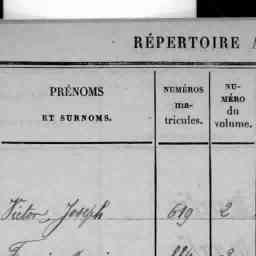 RÉPERTOIRE
PRÉNOMS
ET SURNOMS.
NUMÉROS
ma-
tricules.
NU-
MÉRO
du
volume.
Victor, Joseph 619 2